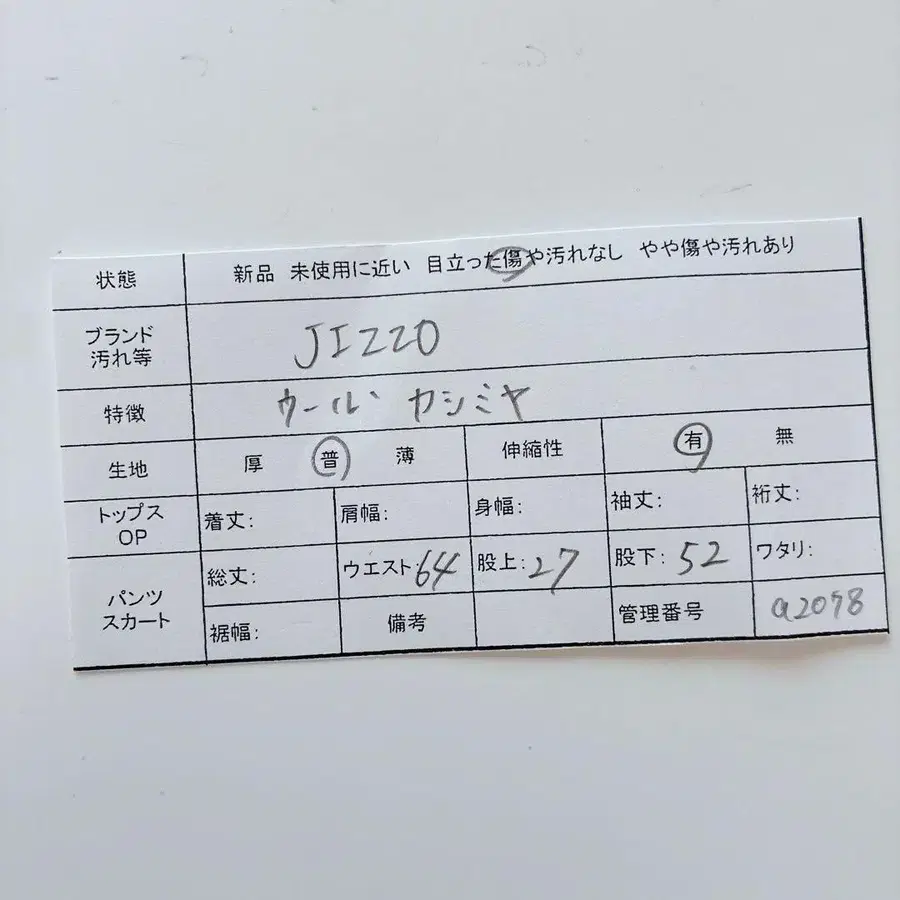 状態 新品 未使用に近い 目立った傷や汚れなし やや傷や汚れあり
ブランド
汚れ等 JIZZO
特徴 ウール カシミヤ
生地 厚 普 薄 伸縮性 有 無
トップス
OP 着丈: 肩幅: 身幅: 袖丈: 裄丈:
パンツ
スカート 総丈: ウエスト:64 股上:27 股下:52 ワタリ:
裾幅: 備考 管理番号 a2078